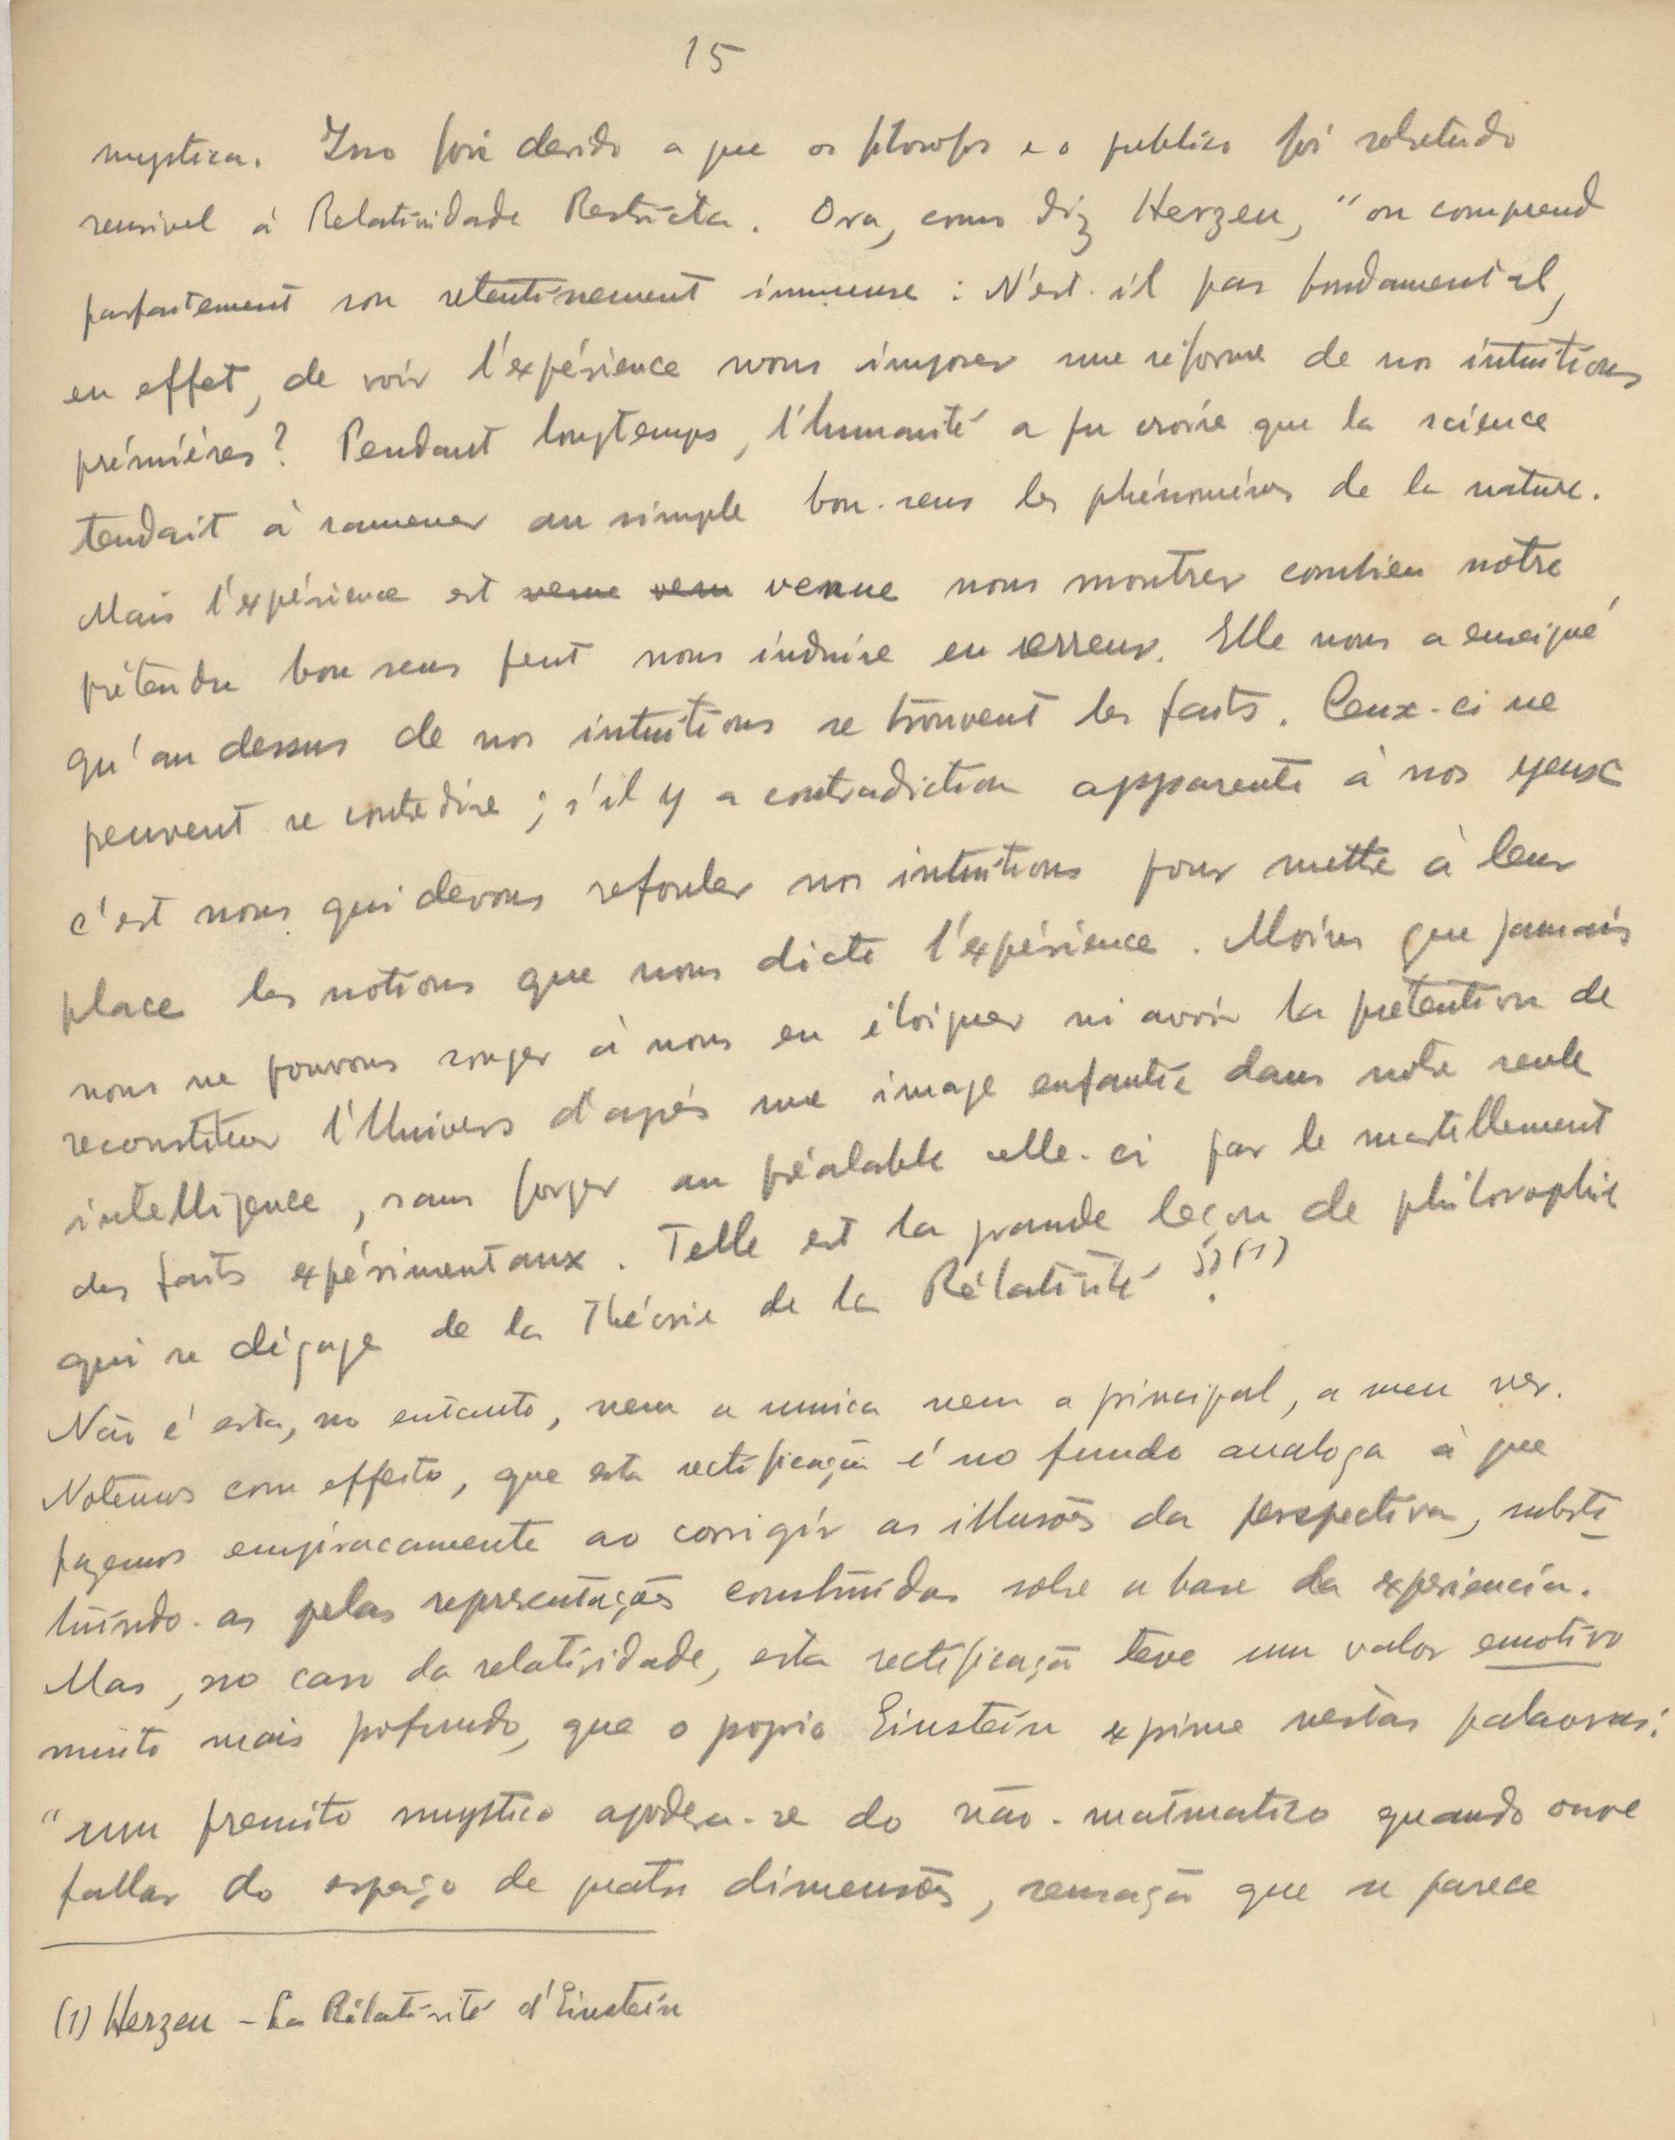 15
mystica. Isso foi devido a que os filosofos e o publico foi sobretudo
sensivel á Relatividade Restricta. Ora, como diz Herzen, "on comprend
parfaitement son retentissement immense : N'est-il pas fondamental,
en effet, de voir l'expérience nous imposer une réforme de nos intuitions
prémiéres? Pendant longtemps, l'humanité a pu croire que la science
tendait à ramener au simple bon-sens les phénoménes de la nature.
Mais l'expérience est venue venu venue nous montrer combien notre
prétendu bon sens peut nous induire en erreur. Elle nous a enseigné
qu'au dessus de nos intuitions se trouvent les faits. Ceux-ci ne
peuvent se contredire ; s'il y a contradiction apparente à nos yeux
c'est nous qui devons refouler nos intuitions pour mettre à leur
place les notions que nous dicte l'expérience. Moins que jamais
nous ne pouvons songer à nous en éloigner ni avoir la prétention de
reconstituer l'Univers d'aprés une image enfantée dans notre seule
intelligence, sans forger au préalable celle-ci par le martellement
des faits expérimentaux. Telle est la grande leçon de philosophie
qui se dégage de la Théorie de la Rélativité". (1)
Não é esta, no entanto, nem a unica nem a principal, a meu ver.
Notemos com effeito, que esta rectificação é no fundo analoga á que
fazemos empiracamente ao corrigir as illusões da perspectiva, substi-
tuindo-as pelas representações construidas sobre a base da experiencia.
Mas, no caso da relatividade, esta rectificação teve um valor emotivo
muito mais profundo, que o proprio Einstein exprime nestas palavras:
"um fremito mystico apodera-se do não-matmatico quando ouve
fallar do espaço de quatro dimensões, sensação que se parece
(1) Herzen - La Rélativité d'Einstein